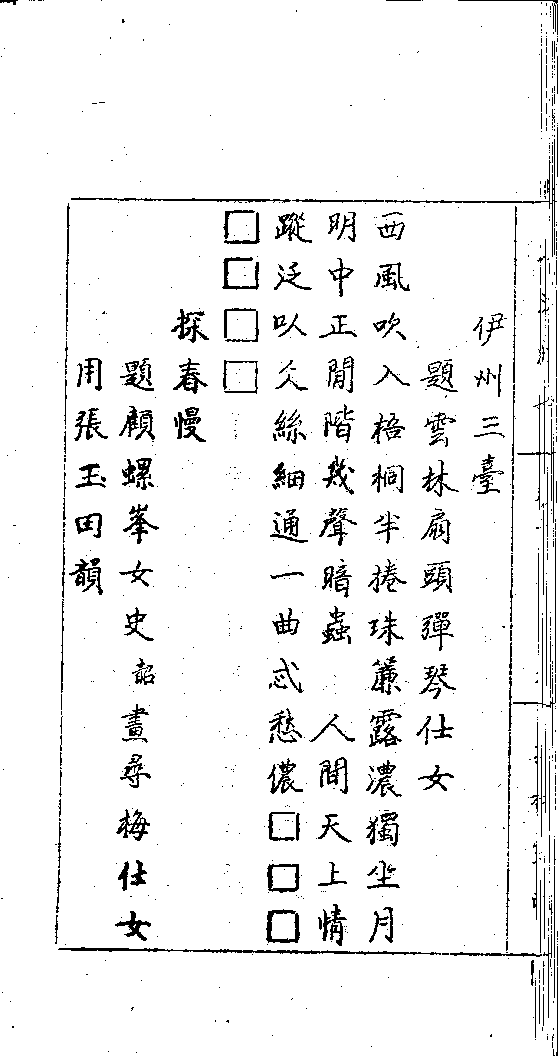 伊州三臺
題雲林扇頭彈琴仕女
西風吹入梧桐半捲珠簾露濃獨坐月
明中正閒階幾聲暗蟲　人間天上情
蹤泛㕥仌絲細通一曲忒愁儂□□□
□□□□
探春慢
題顧螺峯女史韶畫尋梅仕女
用張玉田韻